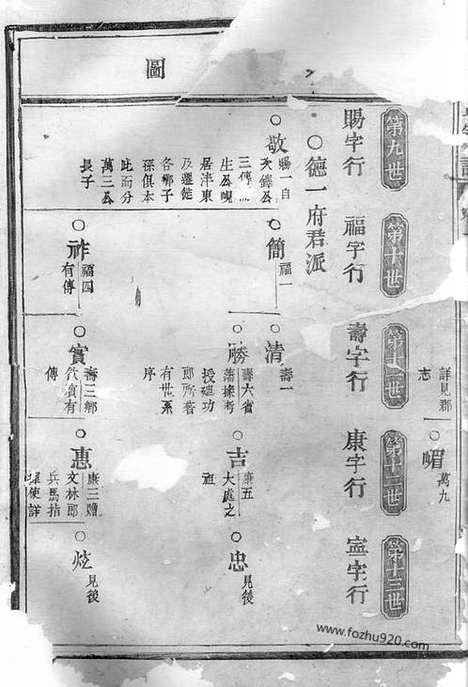 圖
萬九
○嵋
詳見郡
志
第九世
第十世
第十一世
第十二世
第十三世
賜字行
福字行
壽字行
康字行
寍字行
○德一府君派
○敬
賜一自
三傳
生公
居沣東
及遷徙
各鄉子
孫俱本
此而分
萬三公
長子
○簡
福一
○清
壽一
○勝
壽六省
藩掾考
授廸功
郎
有世系
序
○吉
康五
大處之
祖
○忠
見後
○祚
福四
有傳
○實
壽三鄉
代賓有
傳
○惠
康三贈
文林郎
兵馬指
揮使詳
○炫
見後
www.fozhu920.com